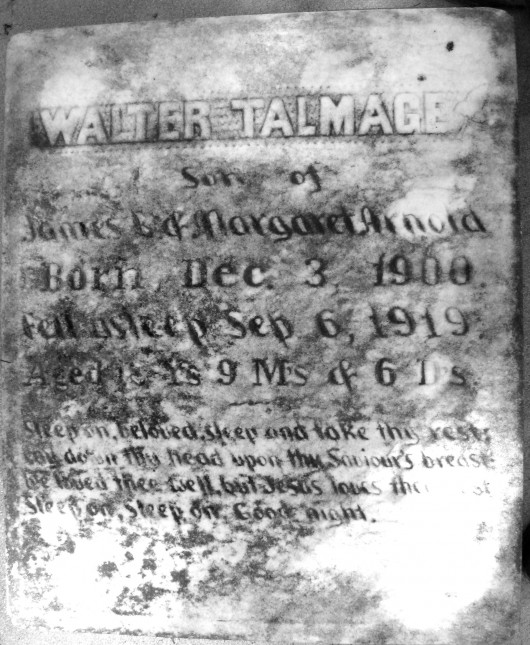 WALTER TALMAGE
Son of
James B. & Margaret Arnold
Born Dec. 3, 1900.
Fell asleep Sep 6, 1919.
Aged 18 Ys 9 Ms & 6 Ds.
Sleep on, beloved, sleep and take thy rest;
Lay down thy head upon thy Saviour's breast:
We loved thee well, but Jesus loves thee
Sleep on, Sleep on Good night.